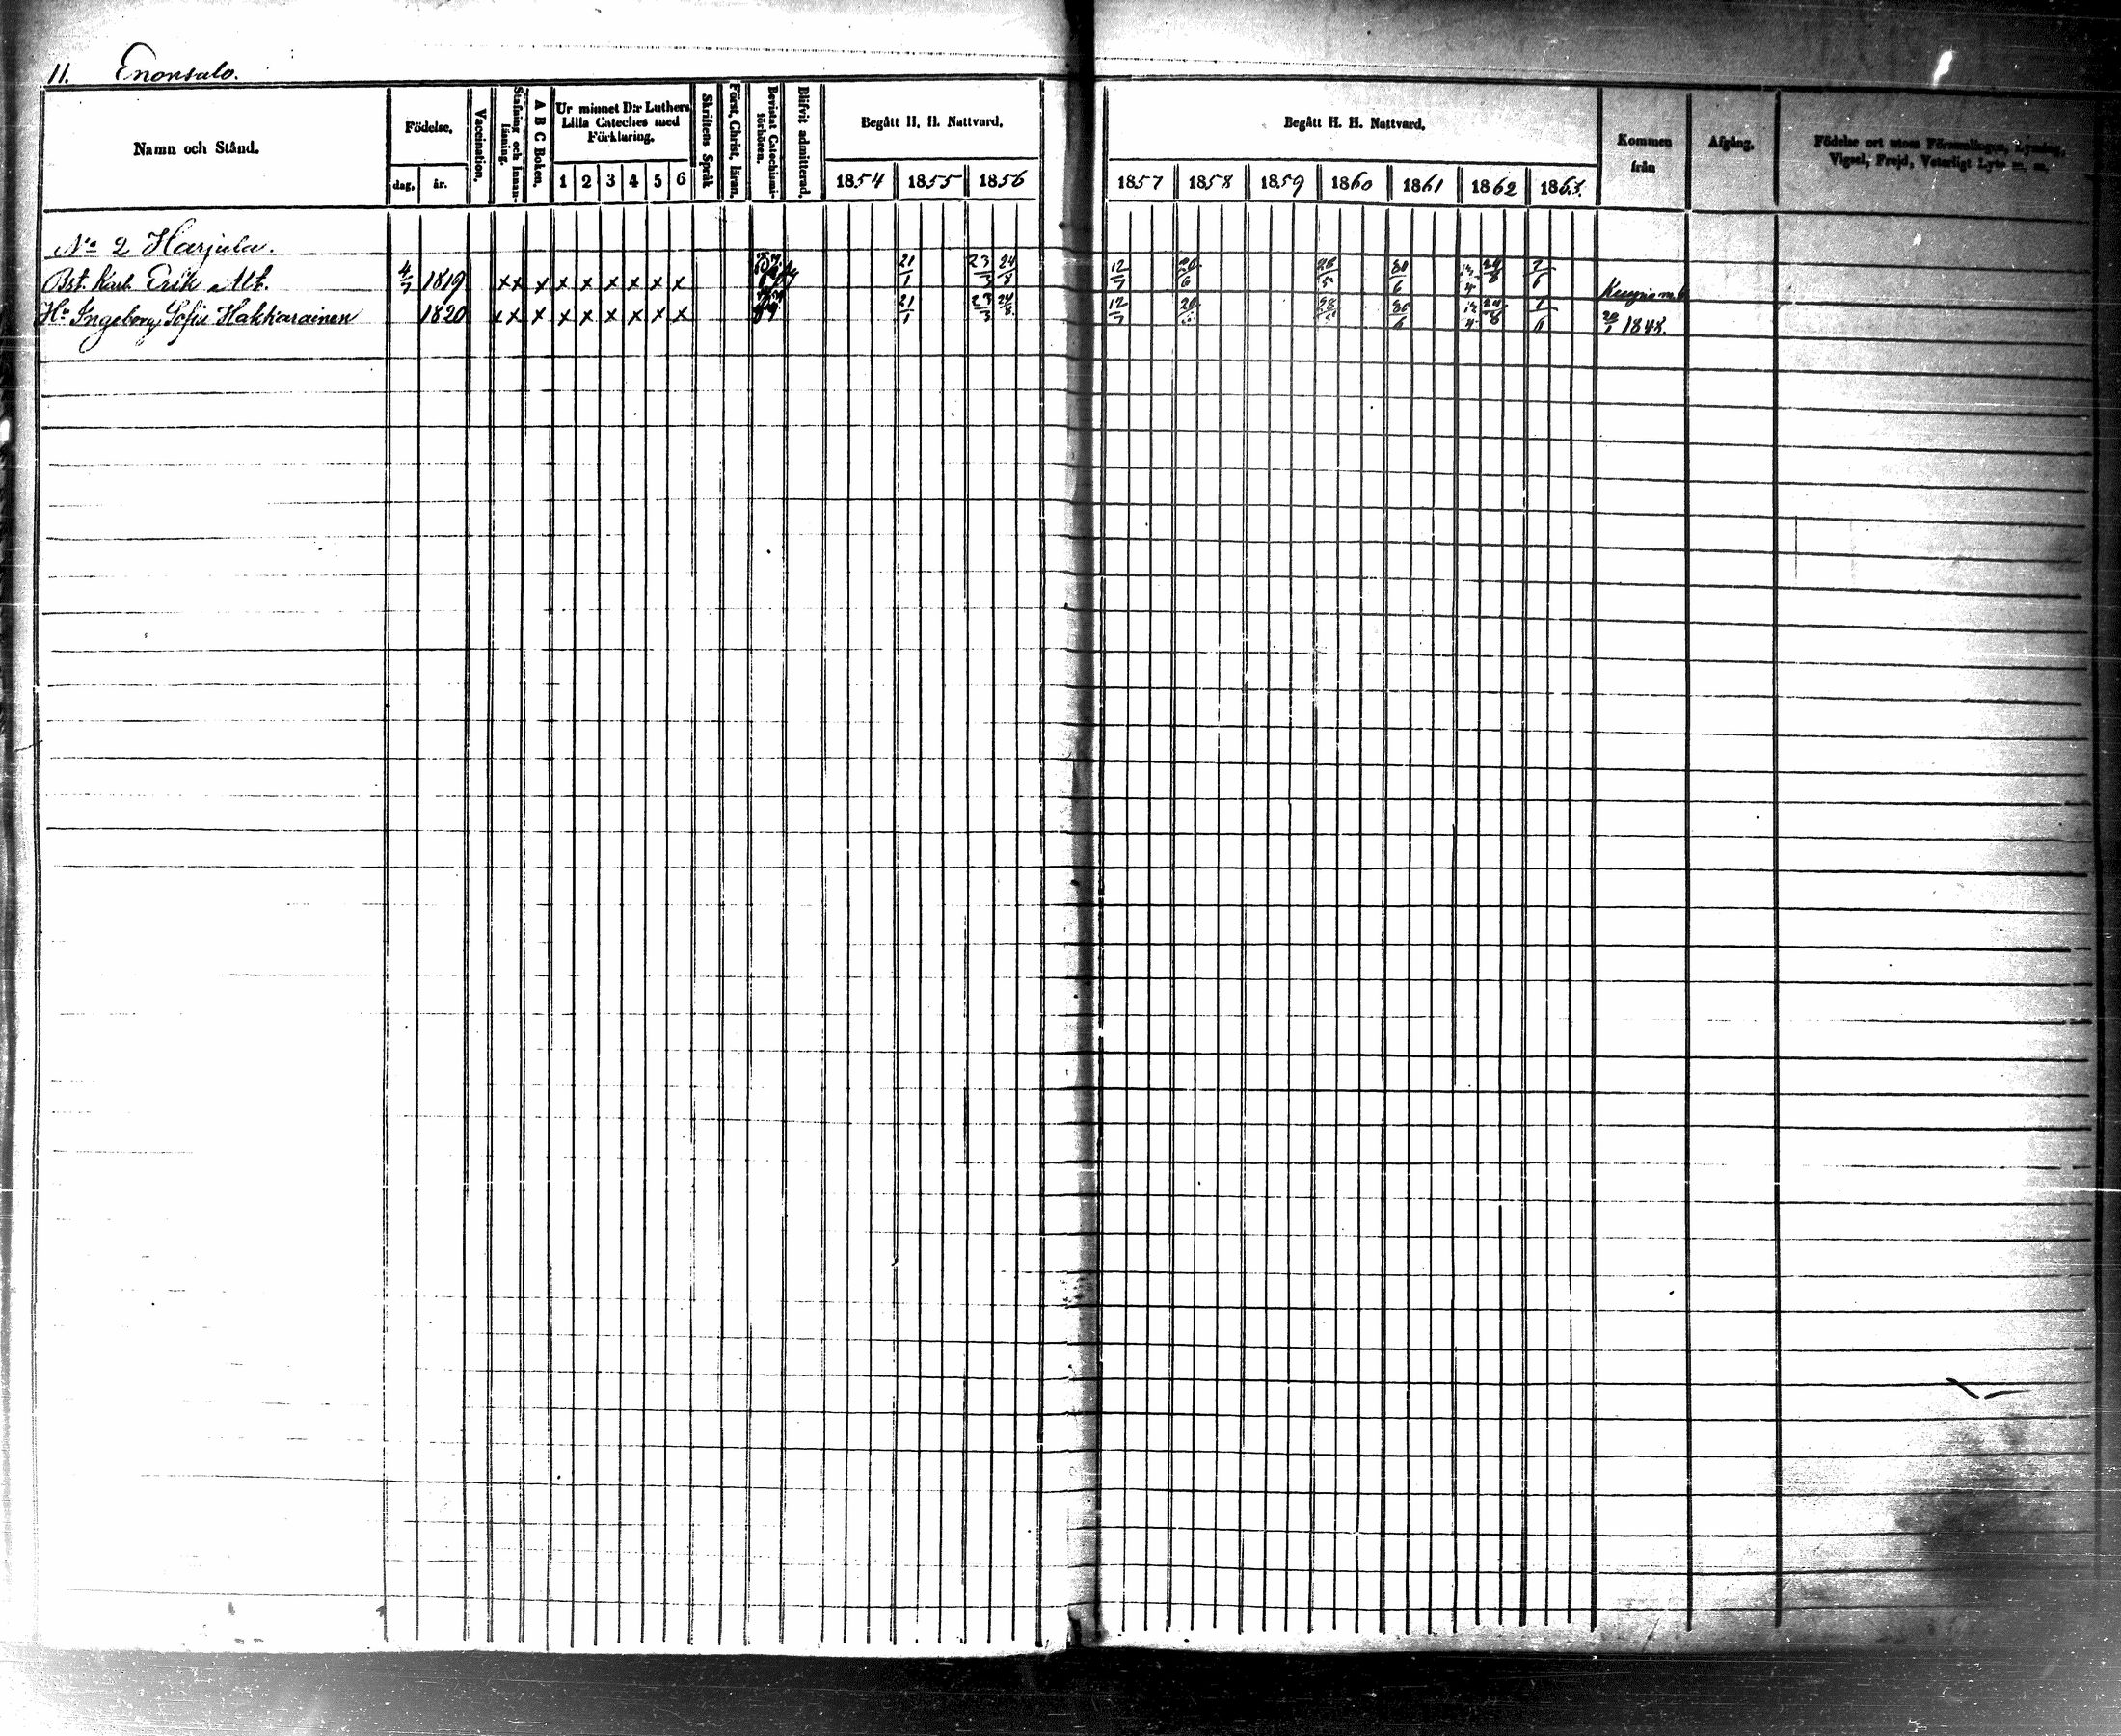 11. Enonsalo.
Namn och Stånd.
Födelse,
dag, år.
Vaccination,
Stafning och Innan-
läsning.
A B C Boken,
Ur minnet D:r Luthers
Lilla Cateches med
Förklaring,
1 2 3 4 5 6
Skriftens Språk
Först, Christ, läran,
Bevistat Catechismi-
förhören,
Blifvit admitterad,
Begått H. H. Nattvard,
1854 1855 1856
Begått H. H. Nattvard,
1857 1858 1859 1860 1861 1862 1863.
Kommen
från
Afgång,
Födelse ort utom Församlingen, Lysning,
Vigsel, Frejd, Veterligt Lyte m. m.
No 2 Harjula.
Bst. Karl Erik 4/7 1819 x x x x x x x x x 21/1 23/3 24/8 12/7 20/6 28/5 30/6 24/8 7/6
Hu Ingeborg Sofia Hakkarainen 1820 x x x x x x x x x 21/1 23/3 24/8 12/7 20 28/5 30/6 12/4 24/8 7/6 20/1 1848.